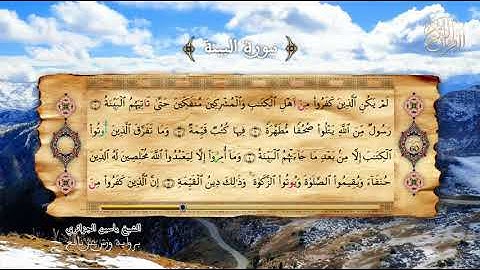 سورة البينة
لَمْ يَكُنِ الَّذِينَ كَفَرُوا مِنَ اَهْلِ الْكِتَٰبِ وَالْمُشْرِكِينَ مُنفَكِّينَ حَتَّىٰ تَاتِيَهُمُ الْبَيِّنَةُ
رَسُولٌ مِّنَ اللَّهِ يَتْلُوا صُحُفًا مُّطَهَّرَةً فِيهَا كُتُبٌ قَيِّمَةٌ وَمَا تَفَرَّقَ الَّذِينَ أُوتُوا
الْكِتَٰبَ إِلَّا مِنۢ بَعْدِ مَا جَآءَتْهُمُ الْبَيِّنَةُ وَمَا أُمِرُوا إِلَّا لِيَعْبُدُوا اللَّهَ مُخْلِصِينَ لَهُ الدِّينَ
حُنَفَآءَ وَيُقِيمُوا الصَّلَوٰةَ وَيُوتُوا الزَّكَوٰةَ وَذَٰلِكَ دِينُ الْقَيِّمَةِ إِنَّ الَّذِينَ كَفَرُوا مِنَ
الشيخ ياسين الجزائري
برواية ورش عن نافع